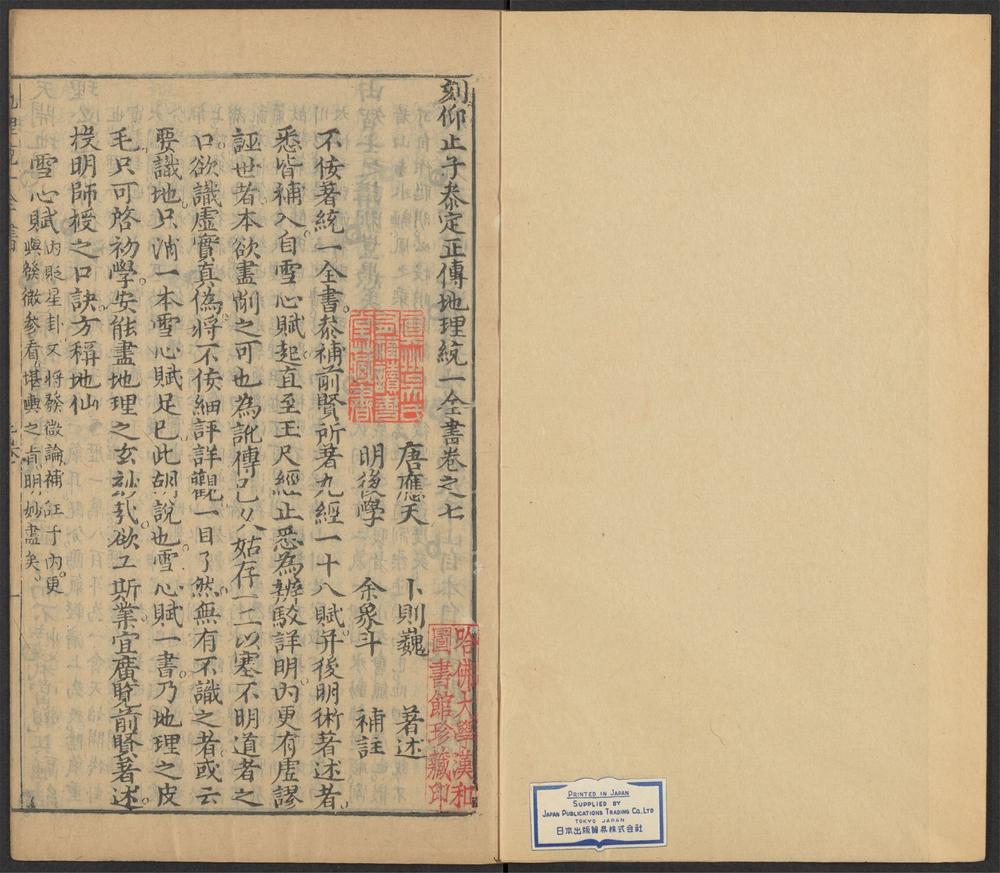 刻仰止子叅定正傳地理統一全書卷之七
唐應天　卜則巍　著述
明後學　余象斗　補註
不佞著統一全書叅補前賢所著九經一十八賦并後明術著述者
悉皆補入自雪心賦起直至玉尺經止悉為辨駁詳明内更有虛謬
誣世者本欲盡削之可也為訛傳已久姑存一二以塞不明道者之
口欲識虛實真偽將不佞細評詳觀一目了然無有不識之者或云
要識地只消一本雪心賦足巳此胡說也雪心賦一書乃地理之皮
毛只可啓初學安能盡地理之玄玅㦲欲工斯業宜廣覽前賢著述
投明師授之口訣方稱地仙
雪心賦内貶星卦又將發微論補註于内更
與發微參看堪輿之肯明妙盡矣
哈佛大學漢和
圖書館珍藏印
PRINTED IN JAPAN
SUPPLIED BY
JAPAN PUBLICATIONS TRADING CO., LTD
TOKYO JAPAN
日本出版貿易株式会社